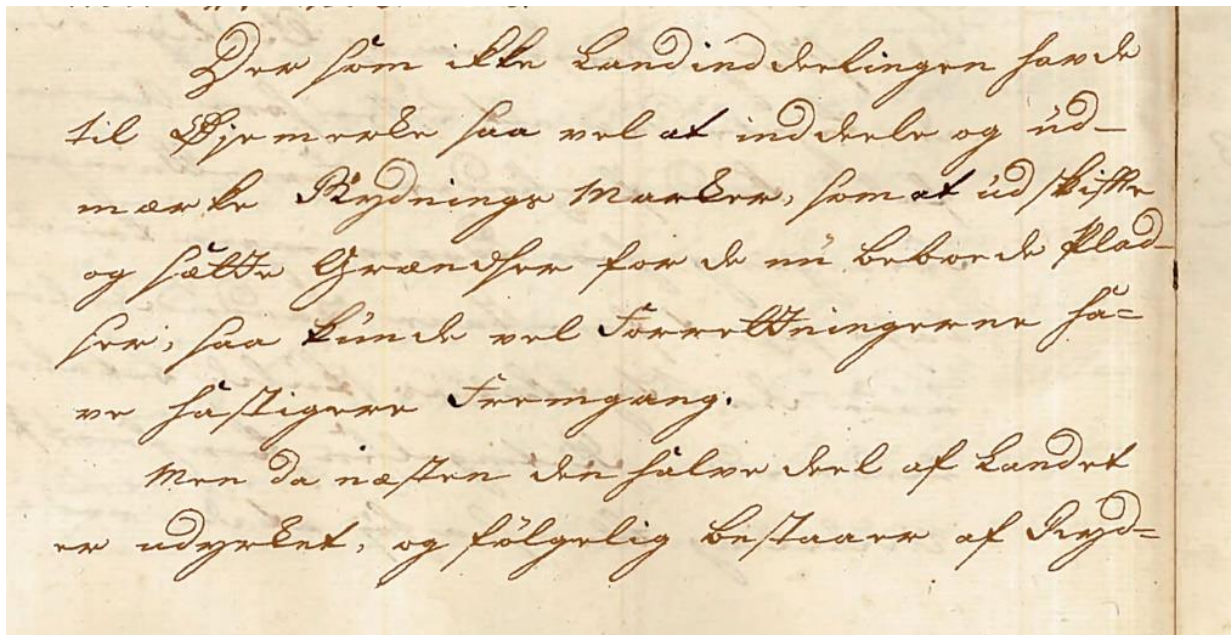 Der som ikke Landinddeelingen havde
til Øjemerke saa vel at inddeele og ud-
mærke Rydnings Marker, som at udskifte
og sætte Grændser for de nu beboede Plad-
ser, saa kunde vel Forrettningerne ha-
ve hastigere Fremgang.
Men da næsten den halve deel af Landet
er udyrket, og følgelig bestaaer af Ryd-